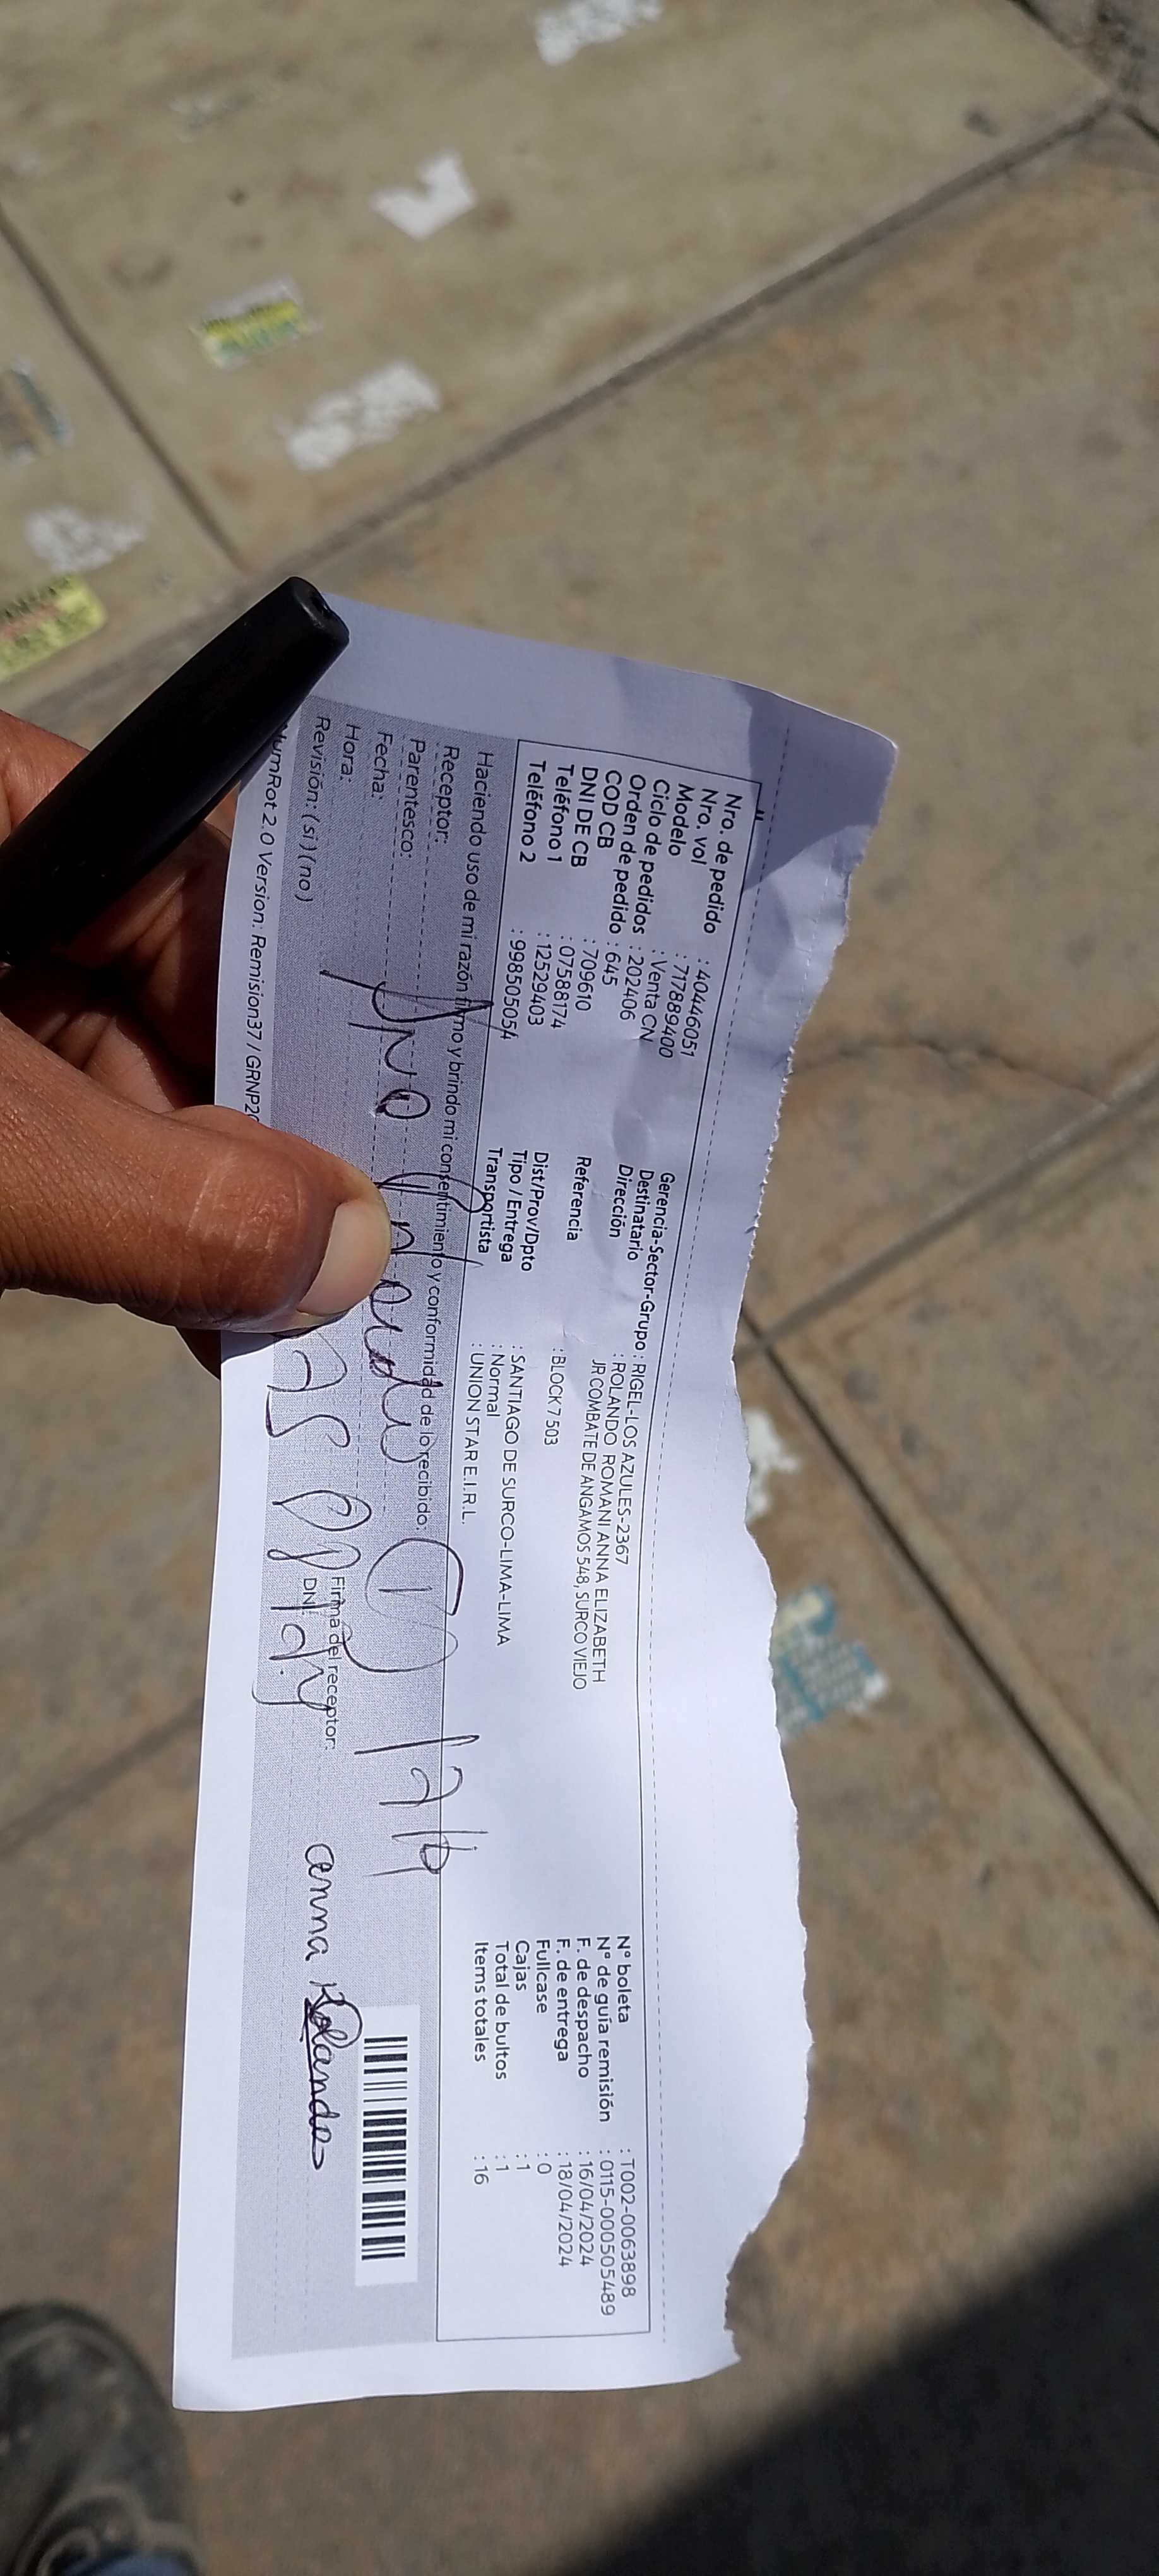 Nro. de pedido : 40446051
Nro. vol : 717889400
Modelo : Venta CN
Ciclo de pedidos : 202406
Orden de pedido : 645
COD CB : 709610
DNI DE CB : 07588174
Teléfono 1 : 12529403
Teléfono 2 : 998505054
Gerencia-Sector-Grupo : RIGEL-LOS AZULES-2367
Destinatario : ROLANDO ROMANI ANNA ELIZABETH
Dirección JR COMBATE DE ANGAMOS 548, SURCO VIEJO
Referencia : BLOCK 7 503
Dist/Prov/Dpto : SANTIAGO DE SURCO-LIMA-LIMA
Tipo / Entrega : Normal
Transportista : UNION STAR E.I.R.L.
N° boleta : T002-0063898
N° de guía remisión : 0115-000505489
F. de despacho : 16/04/2024
F. de entrega : 18/04/2024
Fullcase : 0
Cajas : 1
Total de bultos : 1
Items totales : 16
Haciendo uso de mi razón firmo y brindo mi consentimiento y conformidad de lo recibido:
Receptor:
Parentesco:
Fecha:
Hora:
Revisión: (si) (no)
Firma del receptor:
DNI
anna Rolando
NumRot 2.0 Version: Remision37 / GRNP20